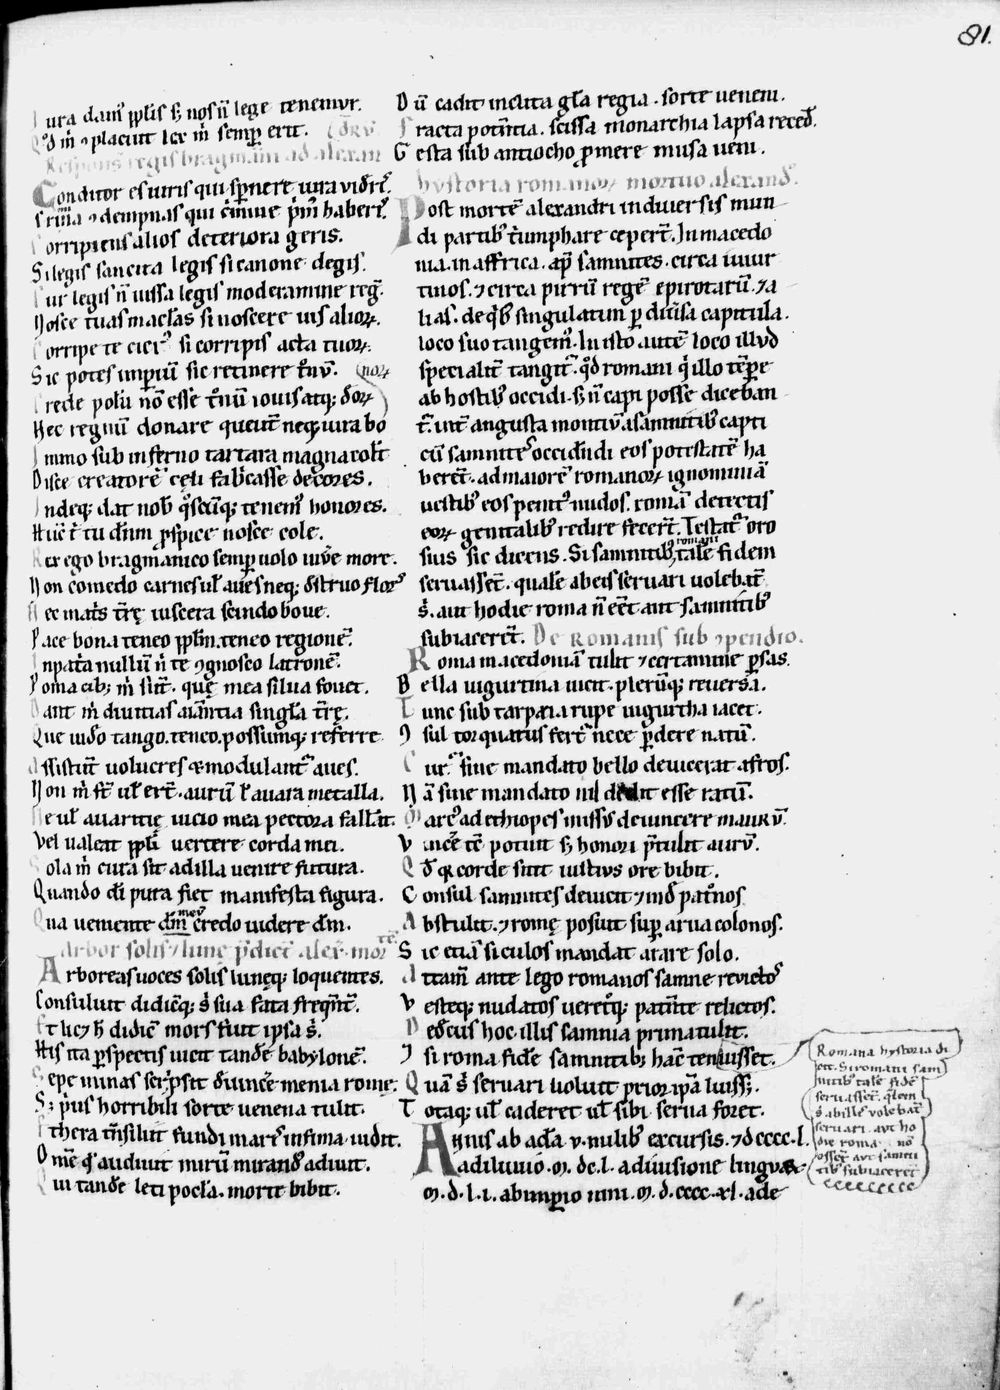 81.
Iura dam᷒ ppl̄is s; nos n̄ lege tenemur.
Qd̄ m̄ ꝯplacuit lex m̄ semꝑ erit.
Respons̄ regis bragmām ad alexan
Conditor es iuris qui sꝑnere iura
ꝯdempnas qui haberi᷒.
Corripiens alios deteriora geris.
Si legis sancita legis si canone degis.
Cur legis n̄ iussa legis moderamine reḡ.
Nosce tuas mac̄las si noscere uis alioꝝ.
Corripe te si corripis acta tuoꝝ.
Sic potes imꝑiū sic retinere
Crede nō esse iouis atq; 
Hec regnū donare queūt neq; iura bo
noꝝ
Immo sub inferno tartara magna colūt
Disce creatorē cęli decores.
Indeq; dat nob̄ tenem᷒ honores.
tu dn̄m ꝓspice nosce cole.
Rex ego bragmanico semꝑ uolo uiue᷒ more.
Non comedo carnes ul̄ aues neq; flor᷒
Nec mat̄s t̄rę uiscera scindo boue.
Pace bona teneo ppl̄m. teneo regionē.
In pat̄a nullū te ꝯgnosco latronē.
Poma cib; m̄ sūt. quę mea silua fouet.
Dant m̄ diuitias singl̄a t̄rę.
Que uido tango. teneo. possumq; referre
Assistūt uolucres & modulant᷒ aues.
Non m̄ ul̄ aurū l̄ auara metalla.
Ne ul̄ auaritię uicio mea pectora
Vel ualeat ppl̄i uertere corda mei.
Sola m̄ cura sit ad illa uenire futura.
Quando di pura fiet manifesta figura.
Qua ueniente dm̄ meū credo uidere dm̄.
Arbor solis ⁊ lunę p̄dicit alex̄. mor
tē
Arboreas uoces solis lunęq; loquentes.
Consuluit didicitq; sua fata freq̄nt̄.
mors fuit ipsa
His ita ꝑspectis uicit tandē babylonē.
Sepe minas sc̄psit menia rome.
S; p̄us horribili sorte uenena tulit.
Ethera t̄nsiluit fundi mar᷒ infima uidit.
Omē qd̄ audiuit mirū mirand᷒ adiuit.
Qui tandē leti poc̄la. morte bibit.
Dū cadit inclita gl̄a regia. sorte ueneni.
Fracta potn̄tia. scissa monarchia lapsa
Gesta sub antiocho ꝓmere musa ueni.
hystoria romanoꝝ mortuo alexand᷒.
Post mortē alexandri in diuersis mun
di partib᷒ t̄umphare ceperūt. In macedo
nia. in affrica. ap̄ samnites. circa iuuur
tinos. ⁊ circa pirrū regē epirotarū. ⁊ a
lias. de qb᷒ singulatim ꝑ diūsa capitula.
loco suo tangem᷒. In isto autē loco illud
specialit̄ tangit᷒. qd̄ romani illo tēpe
ab hostib᷒ occidi. s; n̄ capi posse diceban
t᷒. int̄ angusta montiū a samnitib᷒ capti
cū samnites occidēdi eos potestatē ha
berēt. ad maiorē romanoꝝ ignominiā
uestib᷒ eos penit᷒ nudos. romā detectis
eoꝝ genitalib᷒ redire fecerūt. Testat᷒ oro
sius sic dicens. Si samnitib; romani talē fidem
seruassēt. qualē ab eis seruari uolebāt
aut hodie roma n̄ eēt aut samnitib᷒
subiacerēt. De Romanis sub ꝯpendio.
Roma macedoniā tulit ⁊ certamine ꝑsas.
Bella uigurtina uicit. plerūq; reuersa.
Tunc sub tarpaia rupe uigurtha iacet.
ꝯsul torquatus nece ꝑdere natū.
Cur᷒ sine mandato bello deuicerat afros.
Nā sine mandato nil dedit esse ratū.
Marc᷒ ad ethiopes missus deuincere maurū.
Vince᷒ potuit s; honori p̄tulit aurū.
Qd̄ corde sitit iustius ore bibit.
Consul samnites deuicit ⁊
Abstulit. ⁊ romę posuit suꝑ arua colonos.
Sic etiā siculos mandat arare solo.
Attamē ante lego romanos samne reuictos
Vesteq; nudatos ueretq; patēte relictos.
Dedecus hoc illis samnia prima tulit.
Si roma fidē samnitib; hanc tenuisset.
Quā seruari uoluit prior ipsa
Totaq; ul̄ caderet ul̄ sibi serua foret.
Annis ab adā .v. milib᷒ excursis. ⁊ dcccc.l.
a diluuio .m. dc.l. a diuisione linguaꝝ
.m.d.l.i. ab imꝑio nini .m.d.cccc.xl. a de
Romana hystoria di
cit. Si romani sam
nitib᷒ talē fidē
seruassēt. q̄lem
ab illis uolebāt
seruari. aut ho
die roma nō
esset. aut samni
tib᷒ subiacerēt